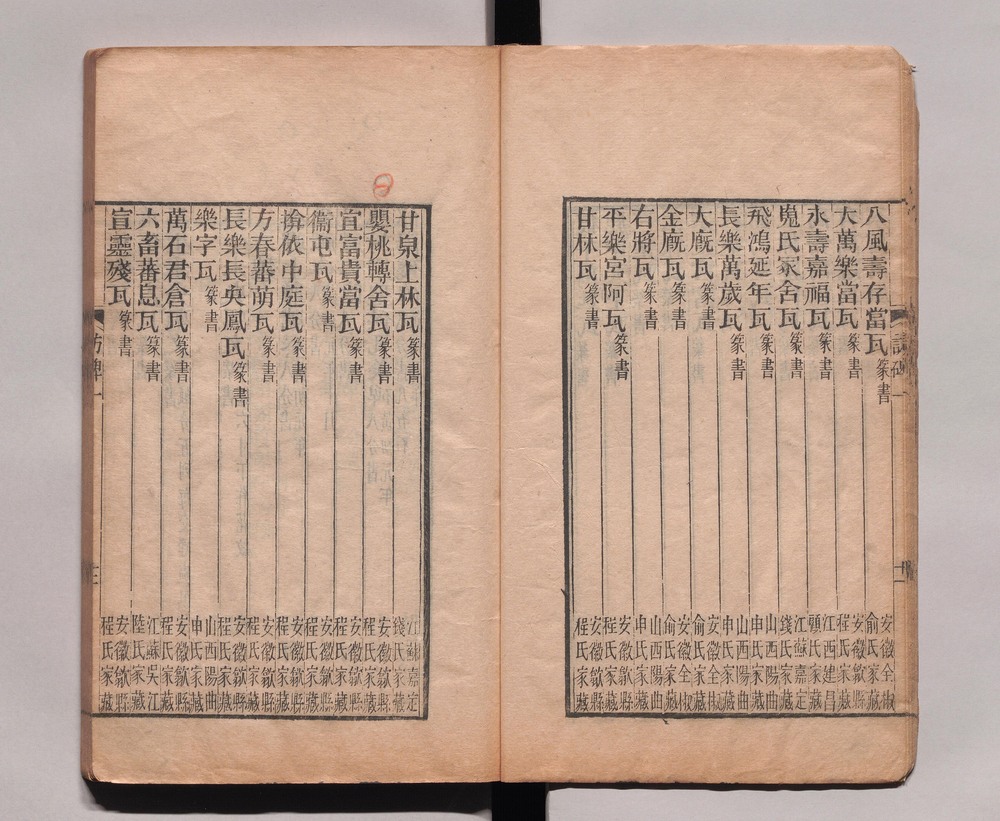 八風壽存當瓦篆書 安徽全椒俞氏家藏
大萬樂當瓦篆書 安徽歙縣程氏家藏
永壽嘉福瓦篆書 江西建昌氏家藏
嵬氏冢舍瓦篆書 江蘇嘉定錢氏家藏
飛鴻延年瓦篆書 山西陽曲申氏家藏
長樂萬歲瓦篆書 山西陽曲申氏家藏
大廐瓦篆書 安徽全椒俞氏家藏
金廐瓦篆書 安徽全椒俞氏家藏
右將瓦篆書 山西陽曲申氏家藏
平樂宮阿瓦篆書 安徽歙縣程氏家藏
甘林瓦篆書 安徽歙縣程氏家藏
甘泉上林瓦篆書 江蘇嘉定錢氏家藏
嬰桃轉舍瓦篆書 安徽歙縣程氏家藏
宜富貴當瓦篆書 安徽歙縣程氏家藏
衞屯瓦篆書 安徽歙縣程氏家藏
揜依中庭瓦篆書 安徽歙縣程氏家藏
方春蕃萌瓦篆書 安徽歙縣程氏家藏
長樂長央鳳瓦篆書 安徽歙縣程氏家藏
樂字瓦篆書 山西陽曲申氏家藏
萬石君倉瓦篆書 安徽歙縣程氏家藏
六畜蕃息瓦篆書 江蘇吳江陸氏家藏
宜靈殘瓦篆書 安徽歙縣程氏家藏
訪碑一 三